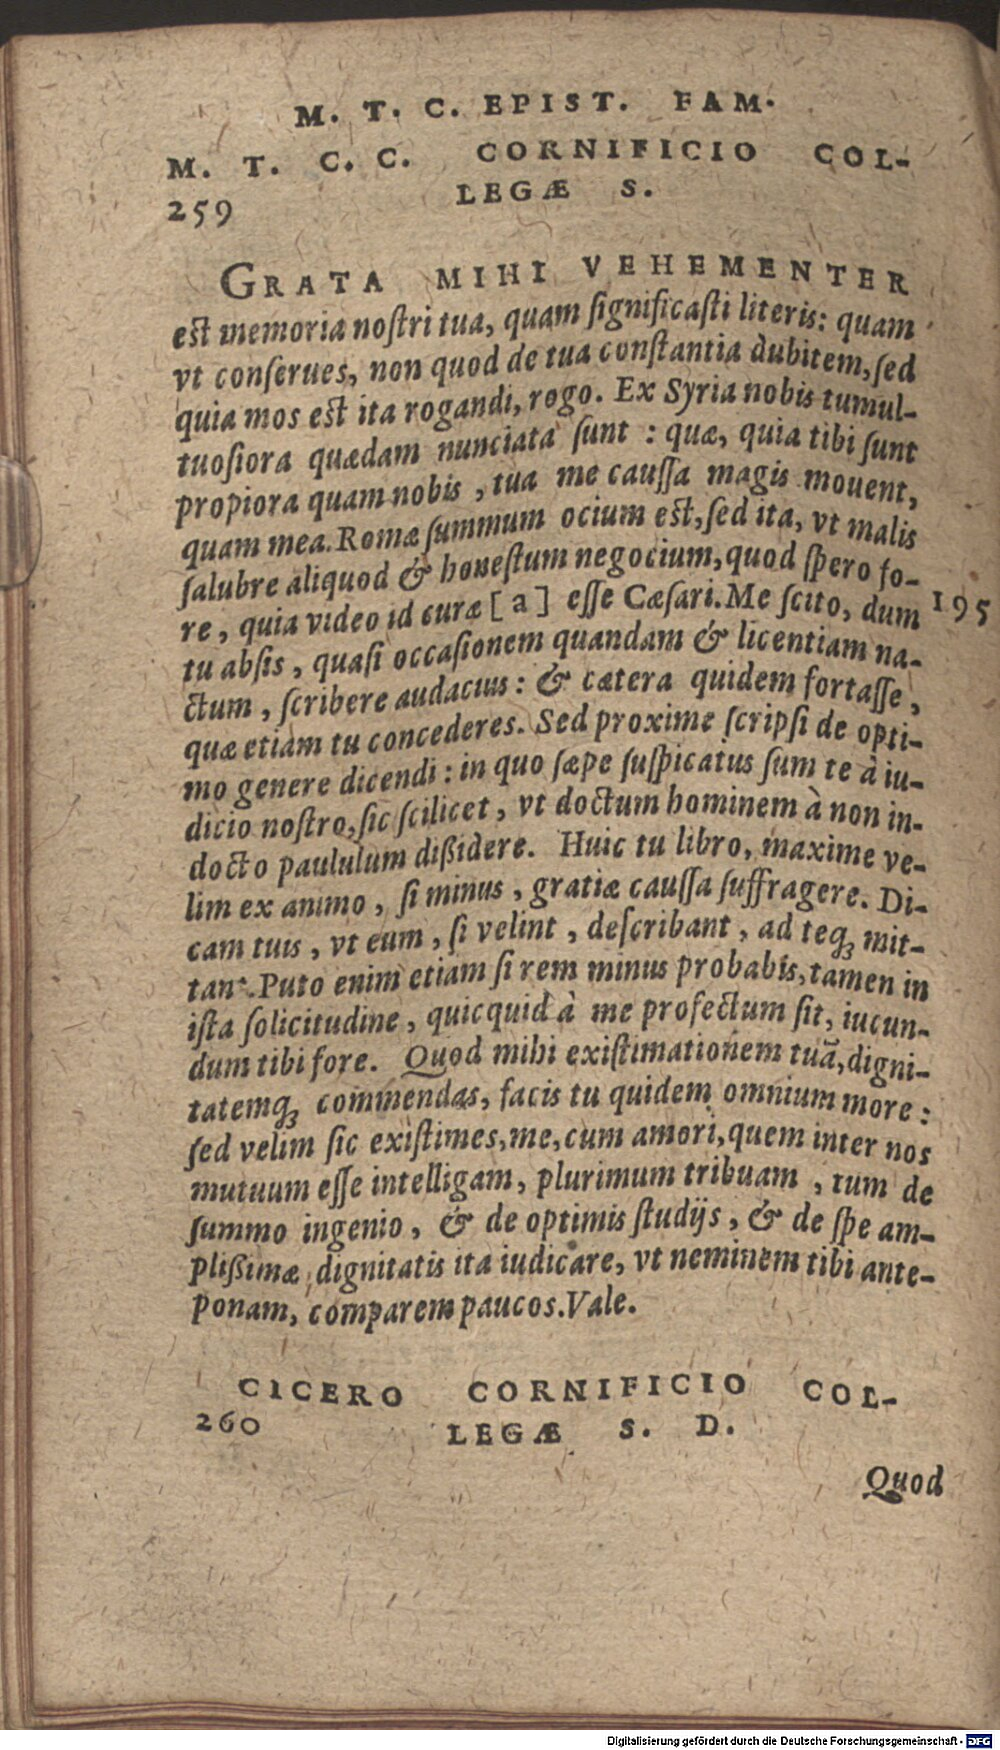 M. T. C. EPIST. FAM.
M. T. C. C. CORNIFICIO COL-
LEGÆ S.
259
GRATA MIHI VEHEMENTER
est memoria nostri tua, quam significasti literis: quam
vt conserues, non quod de tua constantia dubitem, sed
quia mos est ita rogandi, rogo. Ex Syria nobis tumul-
tuosiora quædam nunciata sunt : quæ, quia tibi sunt
propiora quam nobis , tua me caussa magis mouent,
quam mea. Romæ summum ocium est, sed ita, vt malis
salubre aliquod & honestum negocium, quod spero fo-
re , quia video id curæ [ a ] esse Cæsari. Me scito, dum 195
tu absis , quasi occasionem quandam & licentiam na-
ctum , scribere audacius : & cætera quidem fortasse ,
quæ etiam tu concederes. Sed proxime scripsi de opti-
mo genere dicendi : in quo sæpe suspicatus sum te à iu-
dicio nostro, sic scilicet , vt doctum hominem à non in-
docto paululum dißidere. Huic tu libro, maxime ve-
lim ex animo , si minus , gratiæ caussa suffragere. Di-
cam tuis , vt eum , si velint , describant , ad teq́ꝫ mit-
tant. Puto enim etiam si rem minus probabis, tamen in
ista solicitudine , quicquid à me profectum sit, iucun-
dum tibi fore. Quod mihi existimationem tuã, digni-
tatemq́ꝫ commendas, facis tu quidem omnium more :
sed velim sic existimes, me, cum amori, quem inter nos
mutuum esse intelligam, plurimum tribuam , tum de
summo ingenio , & de optimis studijs , & de spe am-
plißimæ dignitatis ita iudicare, vt neminem tibi ante-
ponam, comparem paucos. Vale.
CICERO CORNIFICIO COL-
260 LEGÆ S. D.
Quod
Digitalisierung gefördert durch die Deutsche Forschungsgemeinschaft - DFG